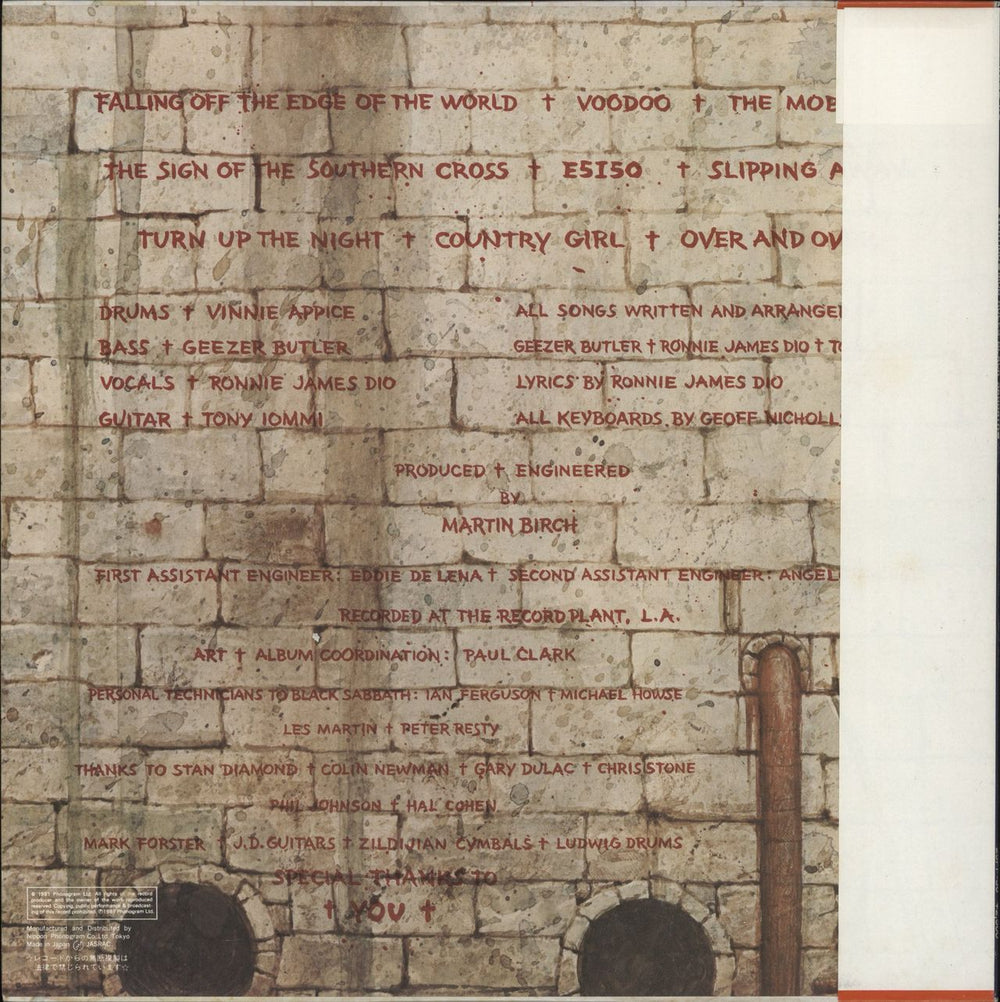 FALLING OFF THE EDGE OF THE WORLD † VOODOO † THE MOB
THE SIGN OF THE SOUTHERN CROSS † E5150 † SLIPPING A
TURN UP THE NIGHT † COUNTRY GIRL † OVER AND OV
DRUMS † VINNIE APPICE
BASS † GEEZER BUTLER
VOCALS † RONNIE JAMES DIO
GUITAR † TONY IOMMI
ALL SONGS WRITTEN AND ARRANGE
GEEZER BUTLER † RONNIE JAMES DIO † TO
LYRICS BY RONNIE JAMES DIO
ALL KEYBOARDS BY GEOFF NICHOLL
PRODUCED † ENGINEERED
BY
MARTIN BIRCH
FIRST ASSISTANT ENGINEER: EDDIE DE LENA † SECOND ASSISTANT ENGINEER: ANGEL
RECORDED AT THE RECORD PLANT, L.A.
ART † ALBUM COORDINATION: PAUL CLARK
PERSONAL TECHNICIANS TO BLACK SABBATH: IAN FERGUSON † MICHAEL HOWSE
LES MARTIN † PETER RESTY
THANKS TO STAN DIAMOND † COLIN NEWMAN † GARY DULAC † CHRIS STONE
PHIL JOHNSON † HAL COHEN
MARK FORSTER † J.D. GUITARS † ZILDIJIAN CYMBALS † LUDWIG DRUMS
SPECIAL THANKS TO
† YOU †
℗ 1981 Phonogram Ltd. All rights of the record
producer and the owner of the work reproduced
reserved. Copying, public performance & broadcast-
ing of this record prohibited. ©1981 Phonogram Ltd.
Manufactured and Distributed by
Nippon Phonogram Co., Ltd. Tokyo
Made in Japan JASRAC
レコードからの無断複製は
法律で禁じられています☆